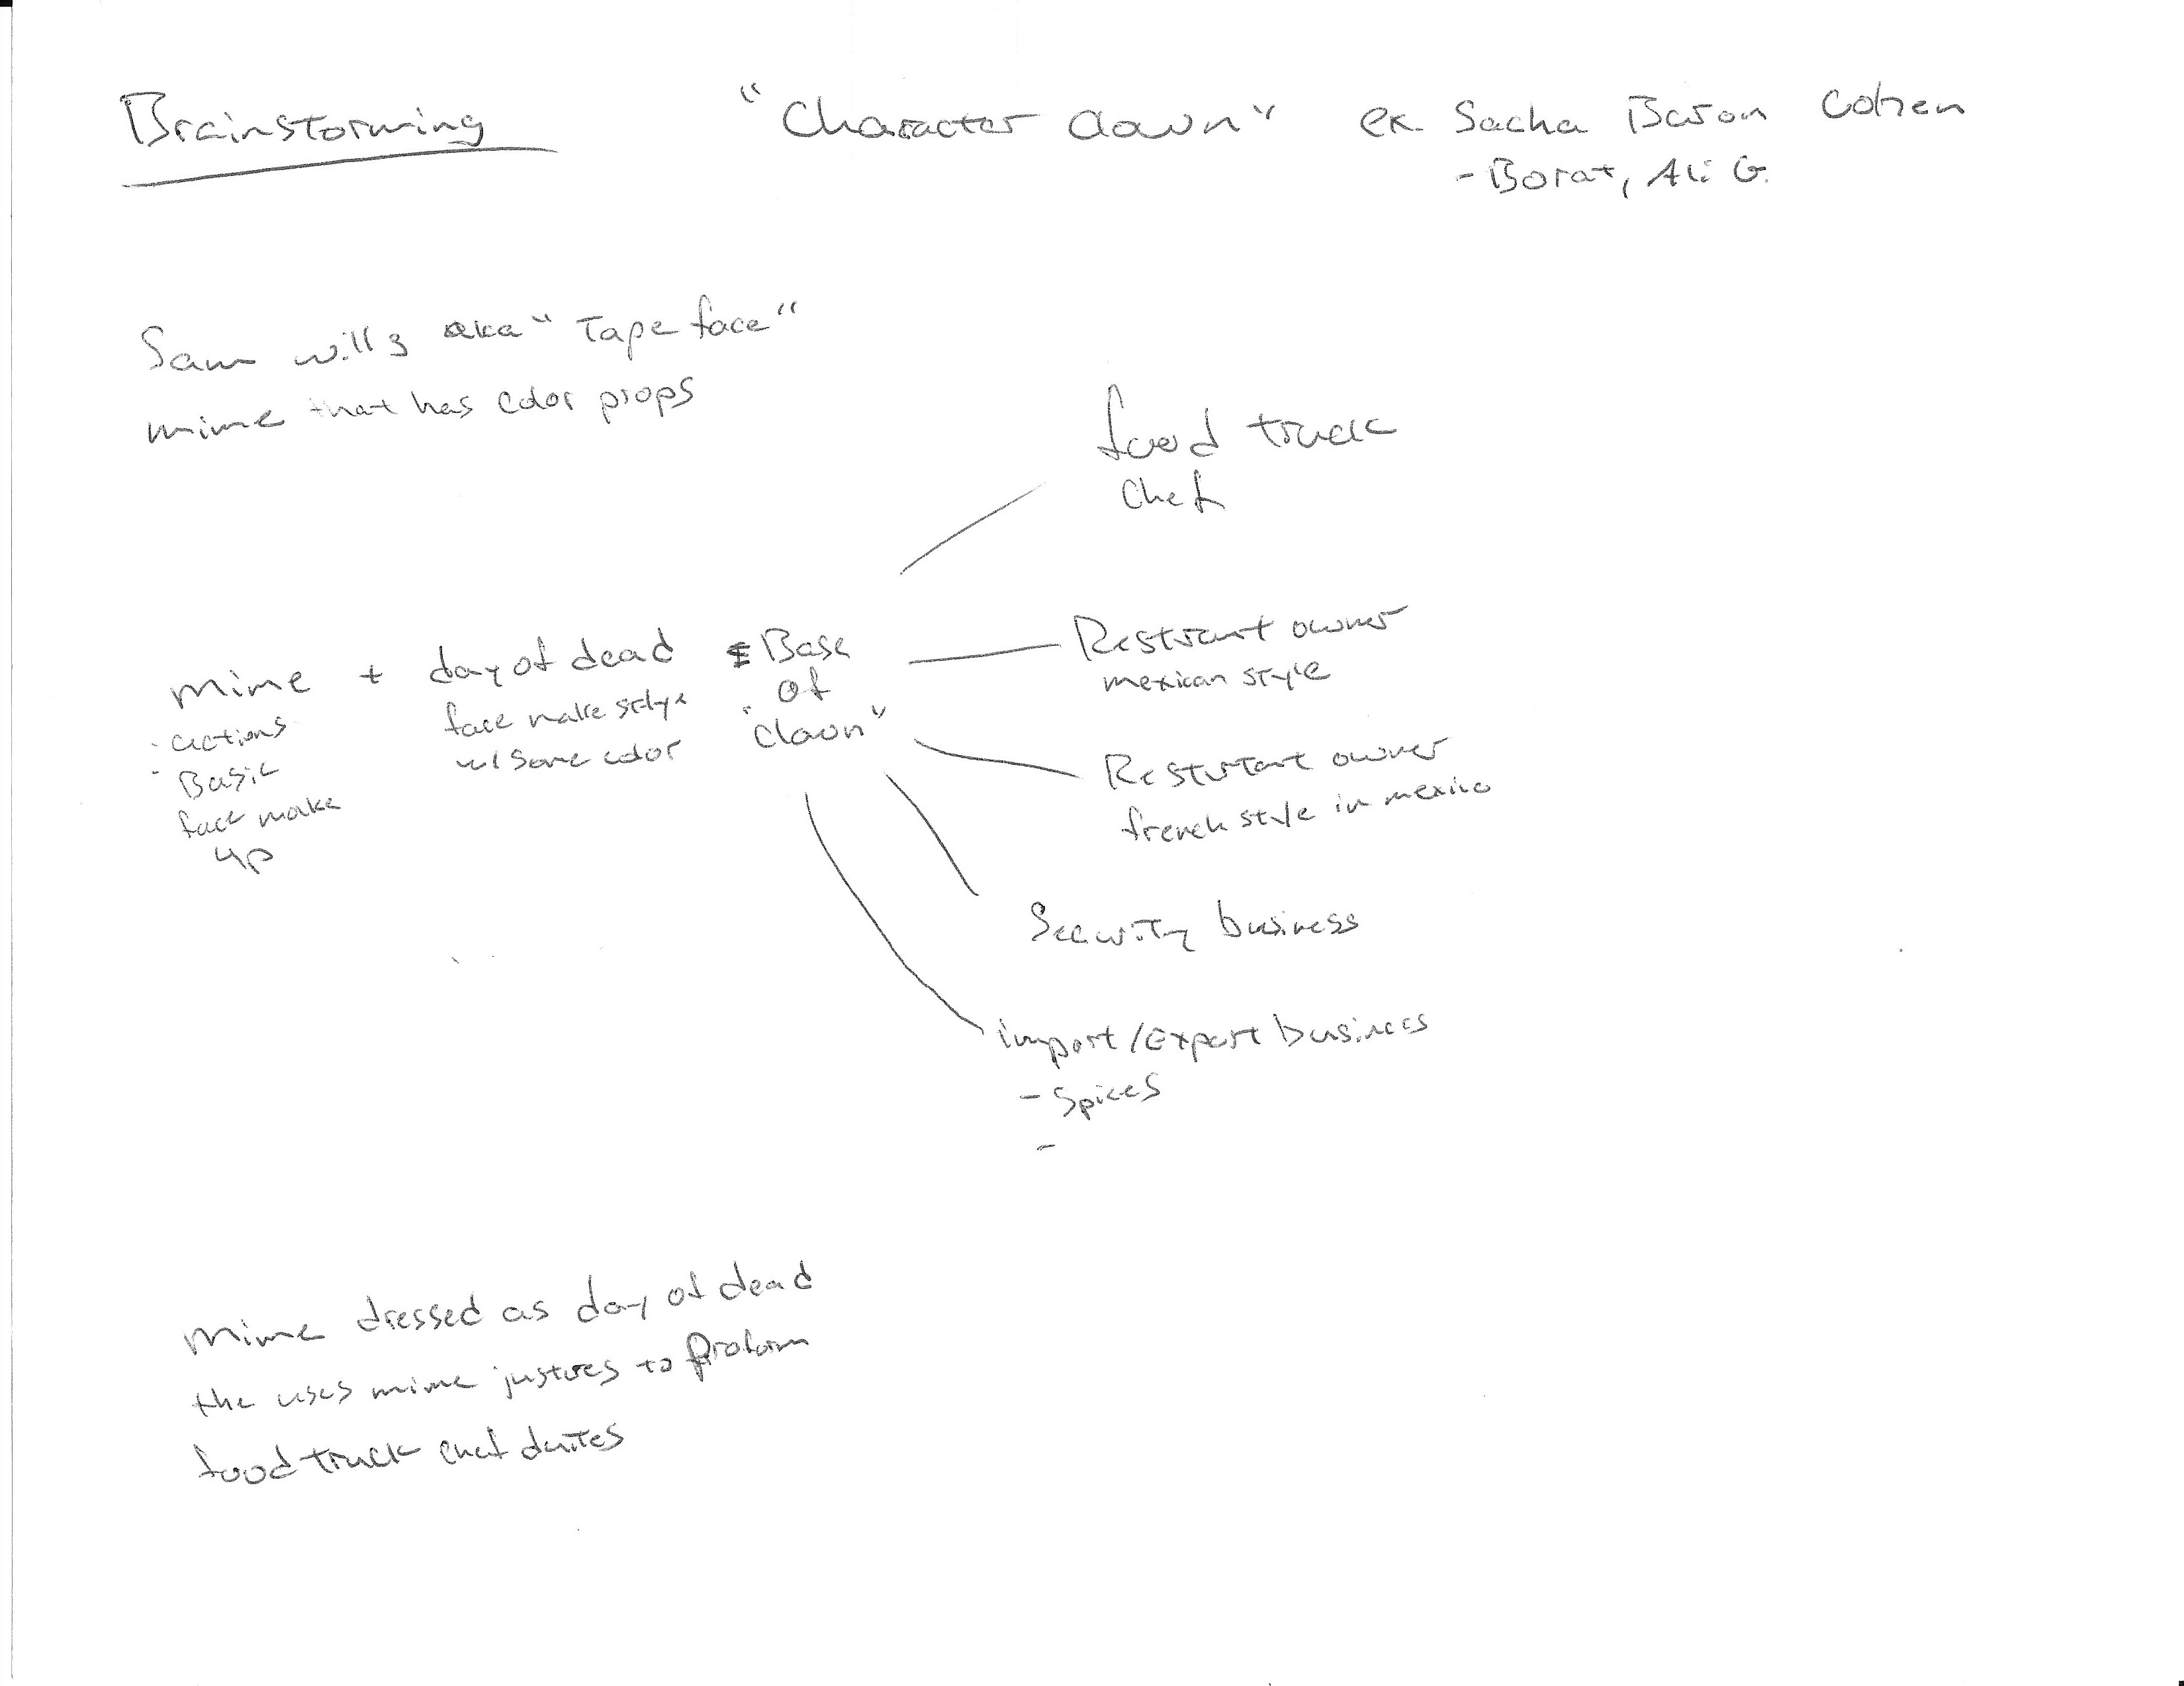 Brainstorming
"Character Clown" ex. Sacha Baron Cohen
- Borat, Ali G.
Sam Wills aka "Tape face"
mime that has color props
food truck
Chef
mime + day of dead = Base
of
"Clown"
- actions
- Basic
face make
up
face make stlye
w/ some color
Restraunt owner
mexican style
Resturant owner
french style in mexico
Security business
import/Export business
- Spices
-
Mime dressed as day of dead
the uses mime justures to
food truck chef